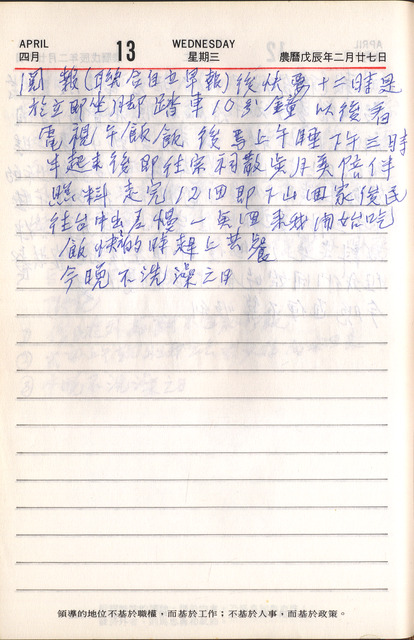 APRIL 13 WEDNESDAY
四月 星期三 農曆戊辰年二月廿七日
閱報(聯合自立早報)後快要十二時是
於立即坐腳踏車10分鐘以後看
電視午飯飯後馬上午睡下午三時
半起來後即往宗祠散步月英陪伴
照料走完12回即下山回家俊民
往台中去慢一點回來我開始吃
飯快的時趕上共餐
今晚不洗澡之日
領導的地位不基於職權，而基於工作；不基於人事，而基於政策。